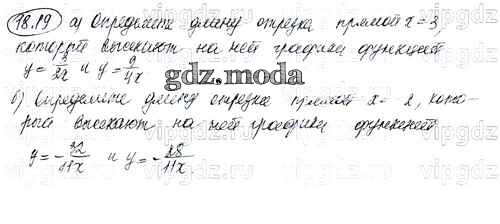 18.19 а) Определите длину отрезка прямой x = 3,
который высекают на ней графики функций
y = 3/2x и y = 9/4x
gdz.moda
б) Определите длину отрезка прямой x = 2, кото-
рый высекают на ней графики функций
y = - 32/11x и y = - 28/11x